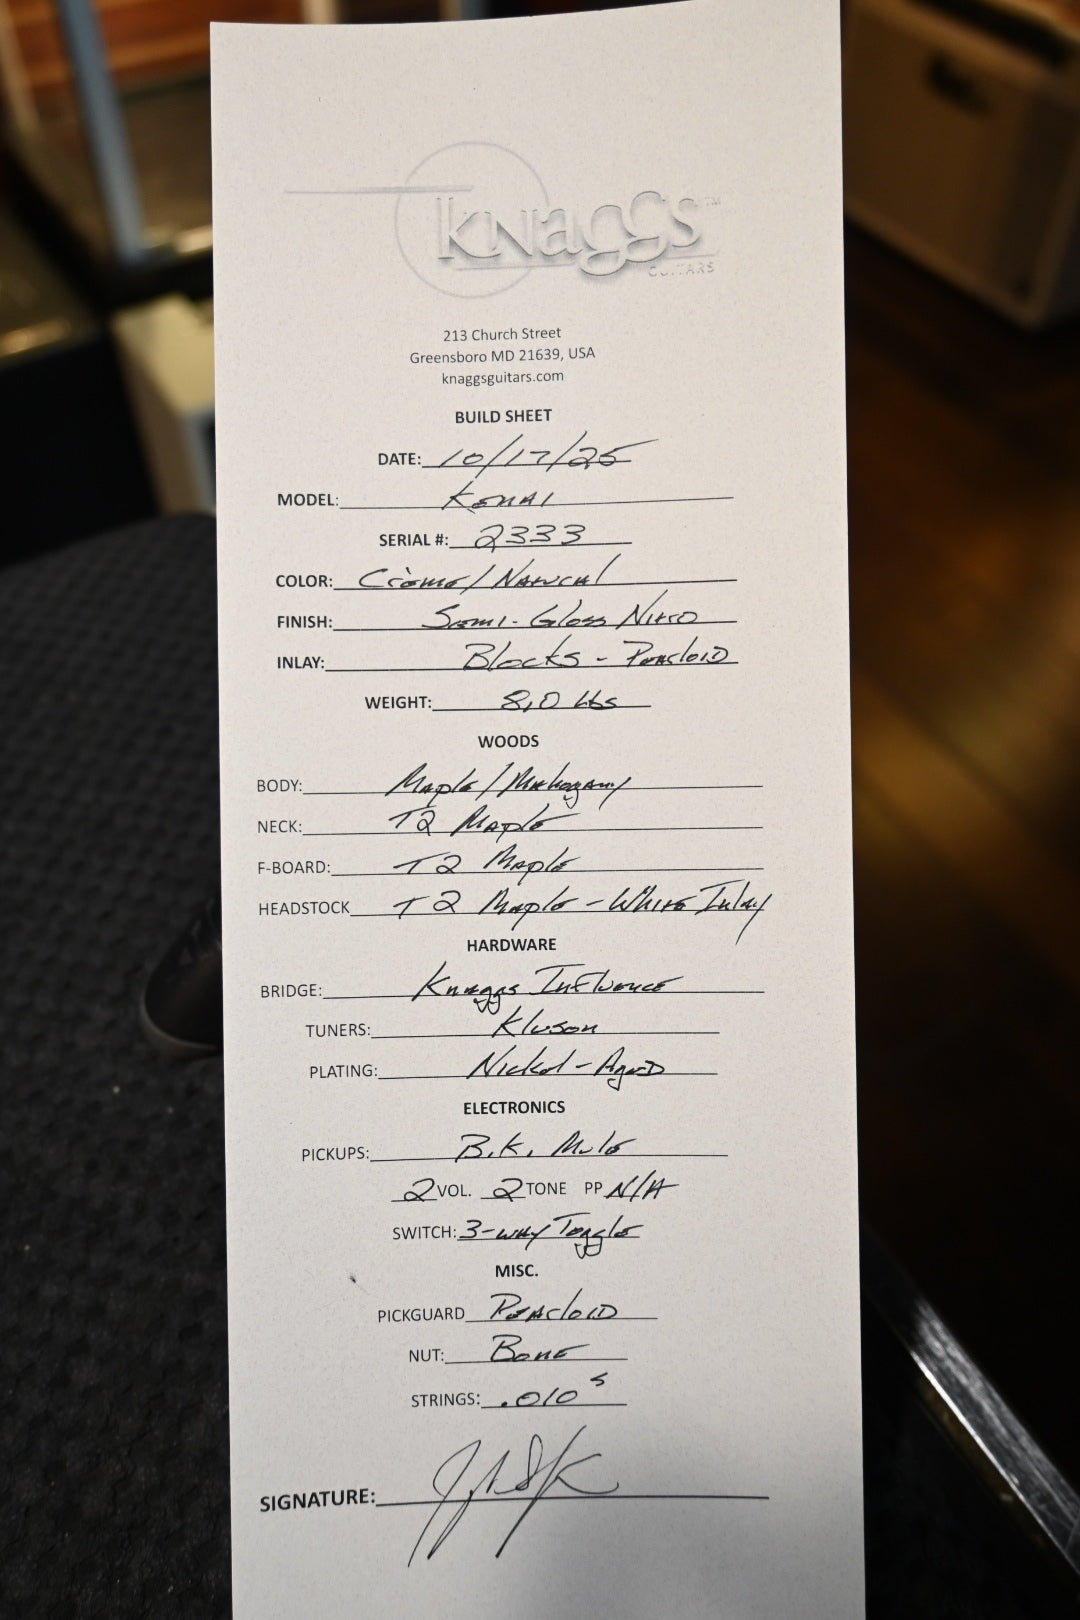 Knaggs™
GUITARS
213 Church Street
Greensboro MD 21639, USA
knaggsguitars.com
BUILD SHEET
DATE: 10/17/25
MODEL: Kenai
SERIAL #: 2333
COLOR: Crème/Natural
FINISH: Semi-Gloss Nitro
INLAY: Blocks - Pearloid
WEIGHT: 8.0 lbs
WOODS
BODY: Maple/Mahogany
NECK: T2 Maple
F-BOARD: T2 Maple
HEADSTOCK T2 Maple - White Inlay
HARDWARE
BRIDGE: Knaggs Influence
TUNERS: Kluson
PLATING: Nickel - Aged
ELECTRONICS
PICKUPS: B.K. Mule
2 VOL. 2 TONE PP N/A
SWITCH: 3-way Toggle
MISC.
PICKGUARD Pearloid
NUT: Bone
STRINGS: .010s
SIGNATURE: